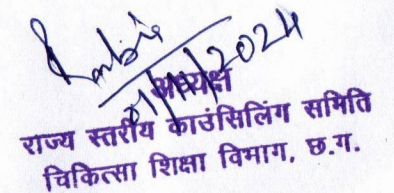 01/11/2024
अध्यक्ष
राज्य स्तरीय काउंसिलिंग समिति
चिकित्सा शिक्षा विभाग, छ.ग.